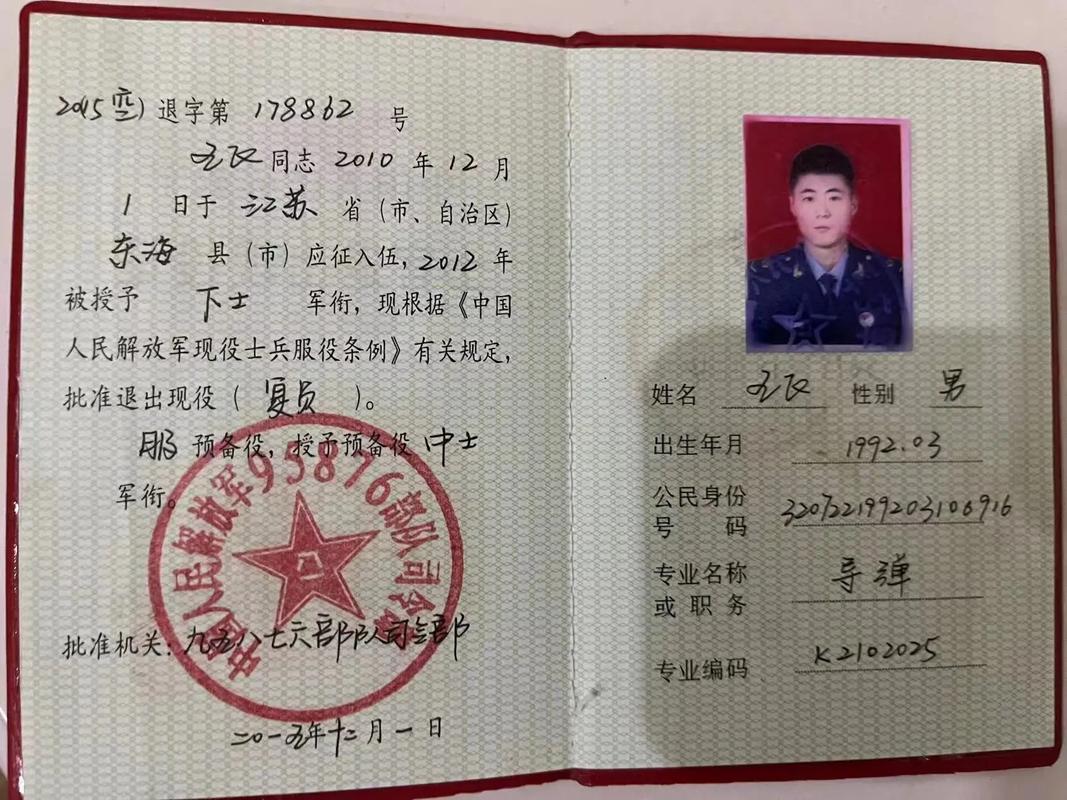 2015(空)退字第 178862 号
同志 2010 年 12 月
1 日于 江苏 省(市、自治区)
东海 县(市)应征入伍,2012 年
被授予 下士 军衔,现根据《中国
人民解放军现役士兵服役条例》有关规定,
批准退出现役( 复员 )。
服 预备役,授予预备役 中士
军衔。
中国人民解放军95876部队司令部
批准机关:九五八七六部队司令部
二〇一五年十二月一日
姓名 性别 男
出生年月 1992.03
公民身份
号码 320722199203106916
专业名称
或职务 导弹
专业编码 K2102025